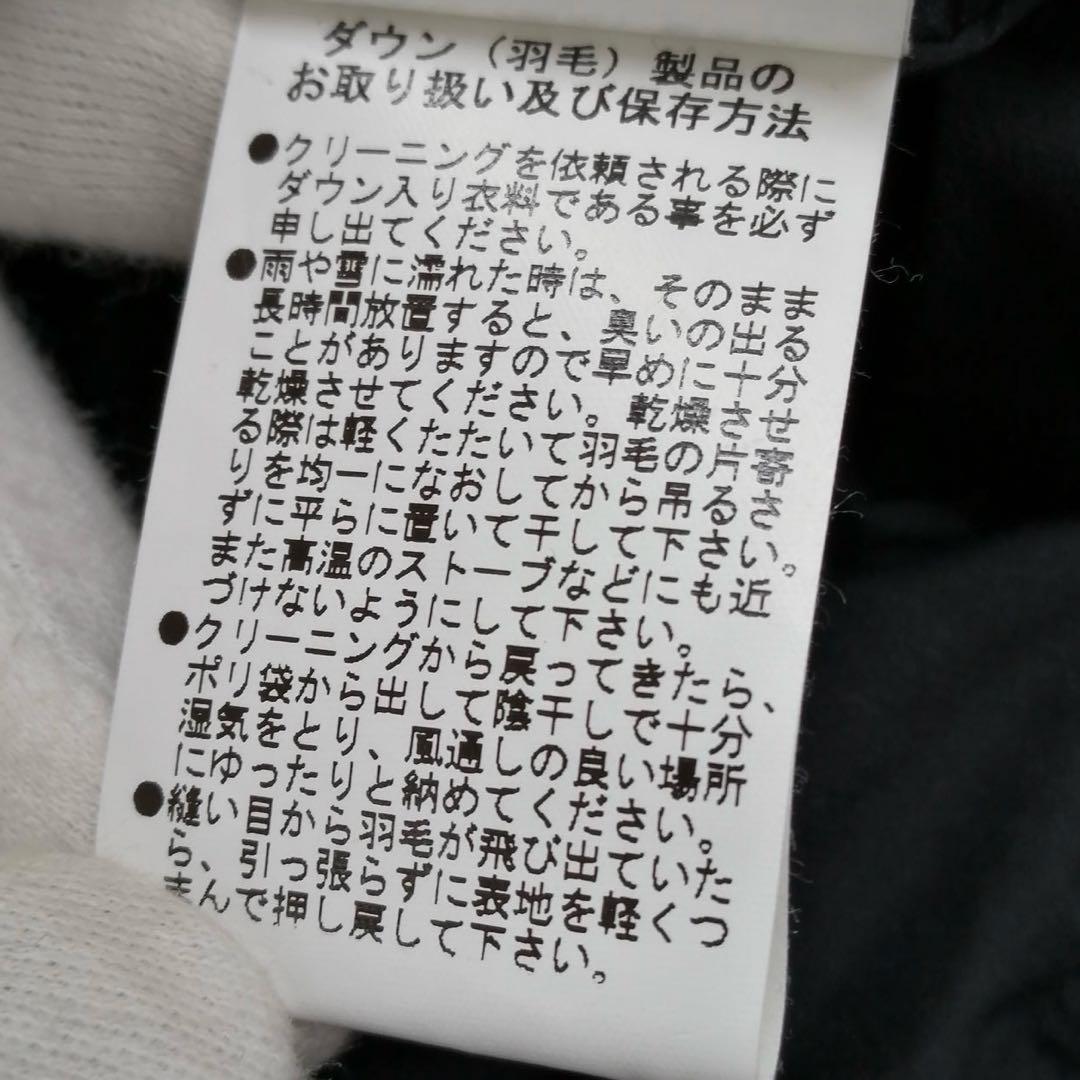 ダウン（羽毛）製品の
お取り扱い及び保存方法
●クリーニングを依頼される際に
ダウン入り衣料である事を必ず
申し出てください。
●雨や雪に濡れた時は、そのまま
長時間放置すると、臭いの出る
ことがありますので早めに十分
乾燥させてください。乾燥させ
る際は軽くたたいて羽毛の片寄
りを均一になおしてから吊るさ
ずに平らに置いて干して下さい。
また高温のストーブなどにも近
づけないようにして下さい。
●クリーニングから戻ってきたら、
ポリ袋から出して陰干しで十分
湿気をとり、風通しの良い場所
にゆったりと納めてください。
●縫い目から羽毛が飛び出ていた
ら、引っ張らずに表地を軽くつ
まんで押し戻して下さい。